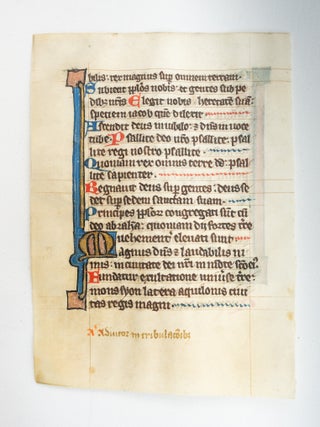 bilis: rex magnus sup omnem terram.
Subiecit pplos nobis: et gentes sub pe
dib; nr̄is. Elegit nobis hereditatē suā:
speciem iacob quē dilexit
Ascendit deus in iubilo: ⁊ dn̄s in uoce
tube. Psallite deo nr̄o psallite: psal
lite regi nostro psallite
Quoniam rex omnis terre ds: psal
lite sapienter.
Regnauit deus sup gentes: deus se
det sup sedem sanctam suam.
Principes pplor congregati sūt cū
deo abraham: quoniam dii fortes tre
uehementer eleuati sunt
Magnus dn̄s ⁊ laudabilis ni
mis: in ciuitate dei nr̄i in mōte scō ei.
Fundatur exultatione uniuse tre:
mons syon latera aquilonis ciui
tas regis magni
A Adiutor in tribulacōib;